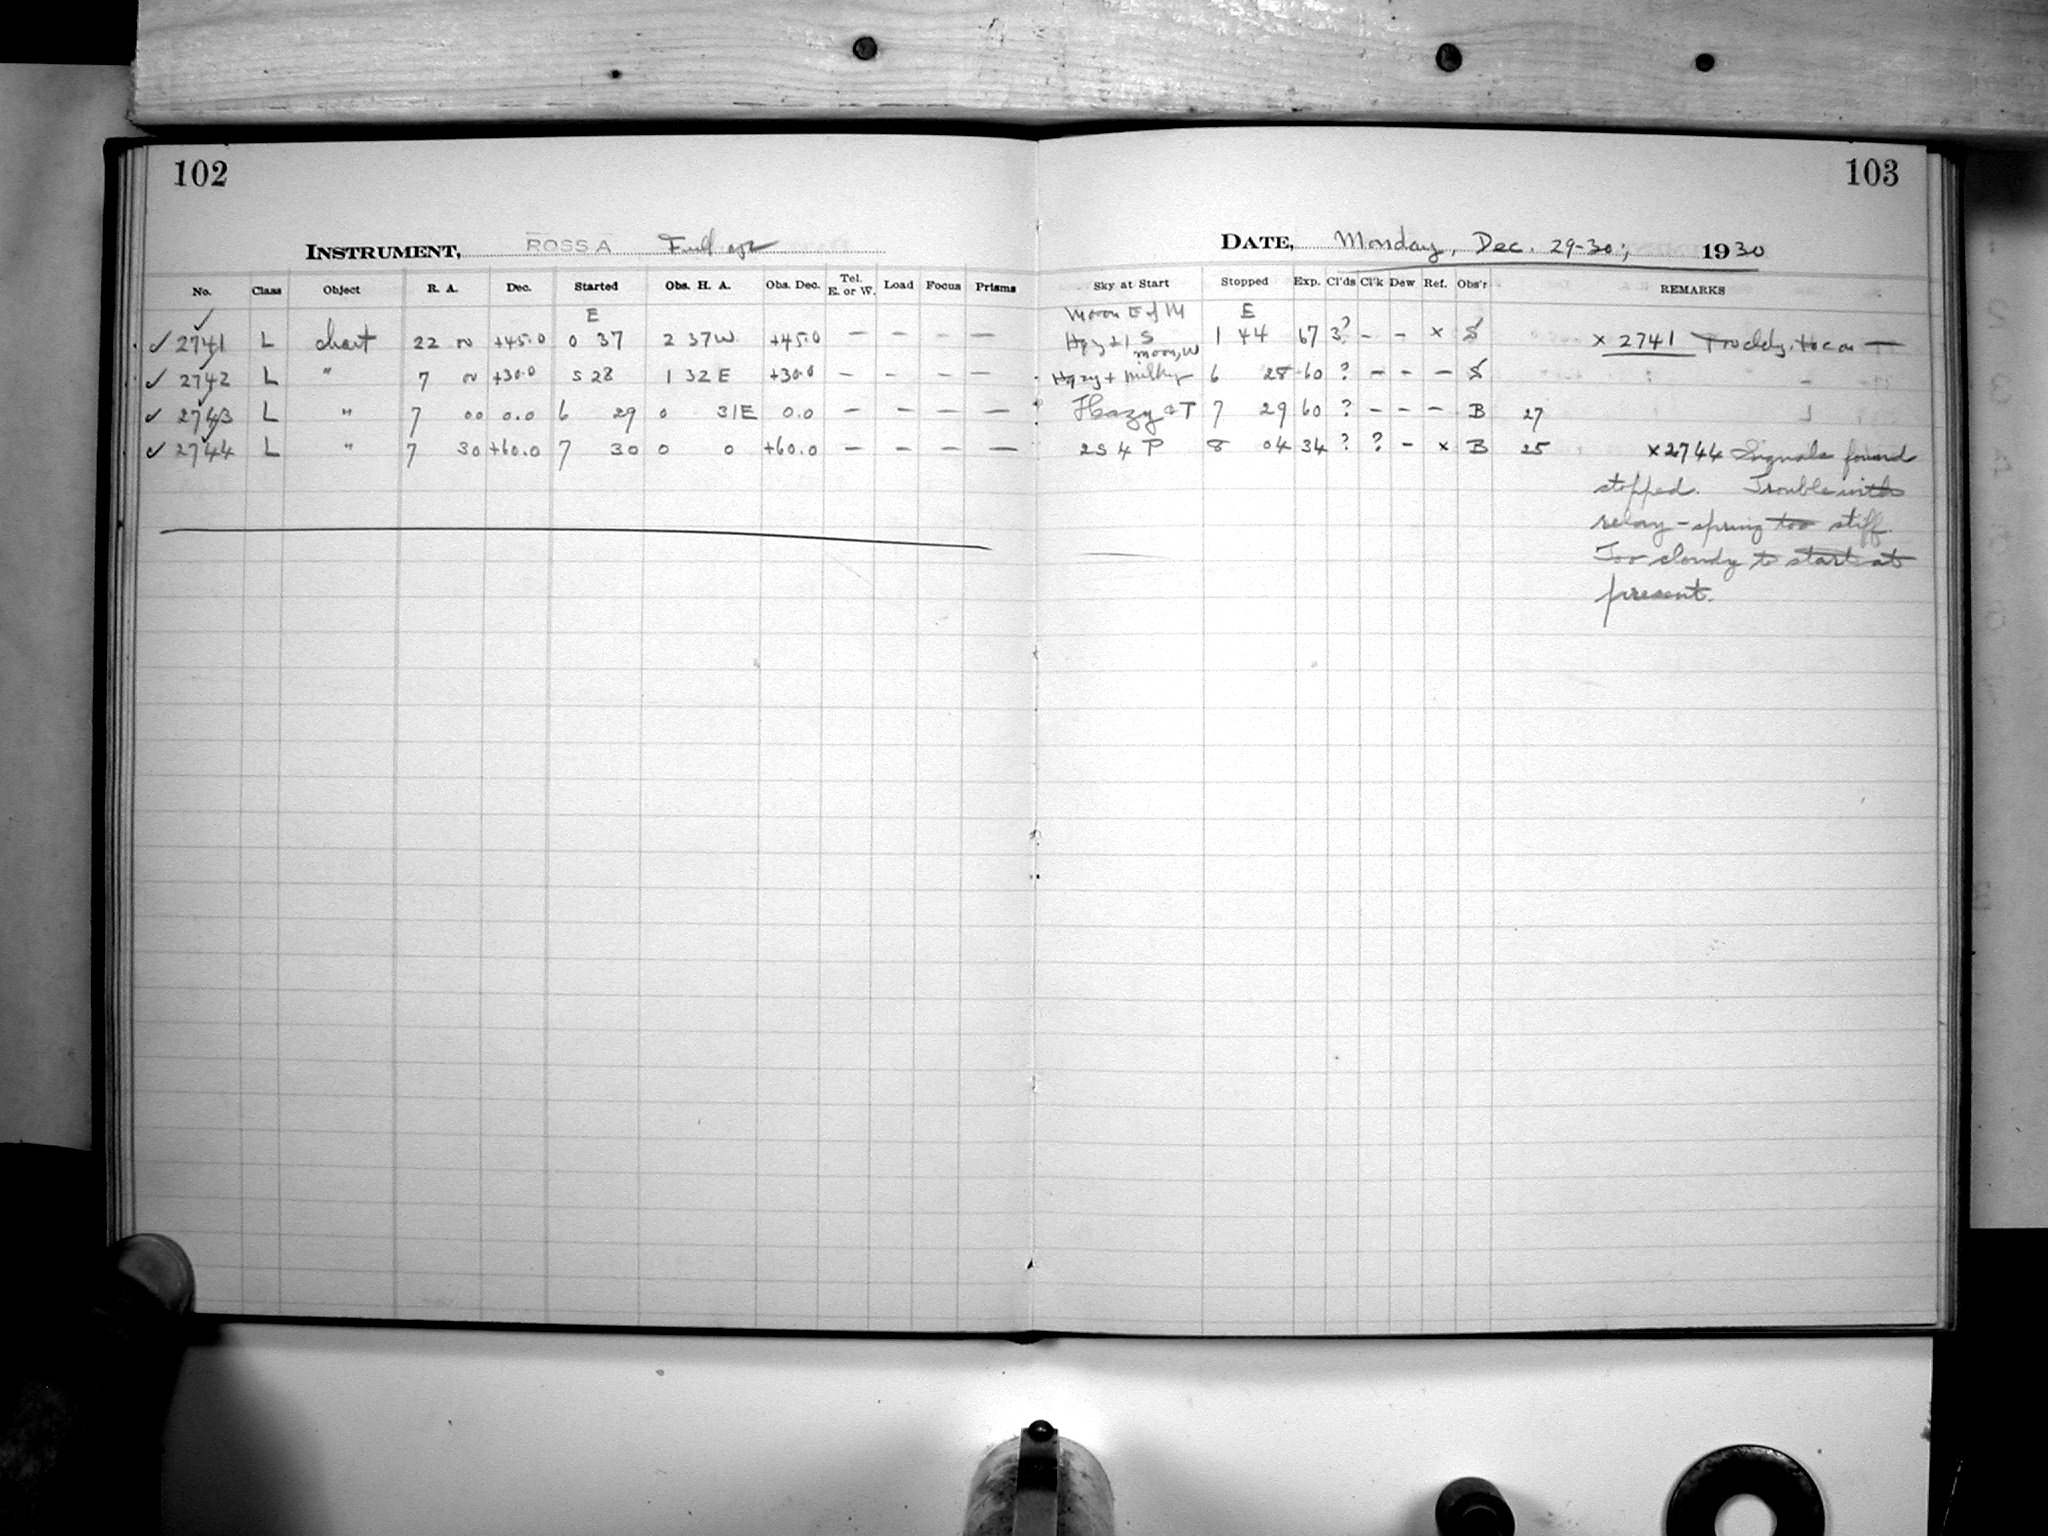 102
103
INSTRUMENT, ROSS A Full ap
DATE, Monday, Dec. 29-30, 1930
No. Class Object R. A. Dec. Started Obs. H. A. Obs. Dec. Tel. E. or W. Load Focus Prisms Sky at Start Stopped Exp. Cl'ds Cl'k Dew Ref. Obs'r REMARKS
E Moon E of M E
✓ 2741 L chart 22 +45.0 0 37 2 37 W +45.0 — — — — S 1 44 67 3? – – × S × 2741
moon, W
✓ 2742 L " 7 +30.0 5 28 1 32 E +30.0 — — — — Hazy + milky 6 28 60 ? – – – S
✓ 2743 L " 7 00 0.0 6 29 0 31E 0.0 — — — — Hazy & T 7 29 60 ? – – – B 27
✓ 2744 L " 7 30 +60.0 7 30 0 0 +60.0 — — — — 2S 4 P 8 04 34 ? ? – × B 25 × 2744 Signals found
stopped. Trouble with
relay – spring too stiff.
Too cloudy to start at
present.